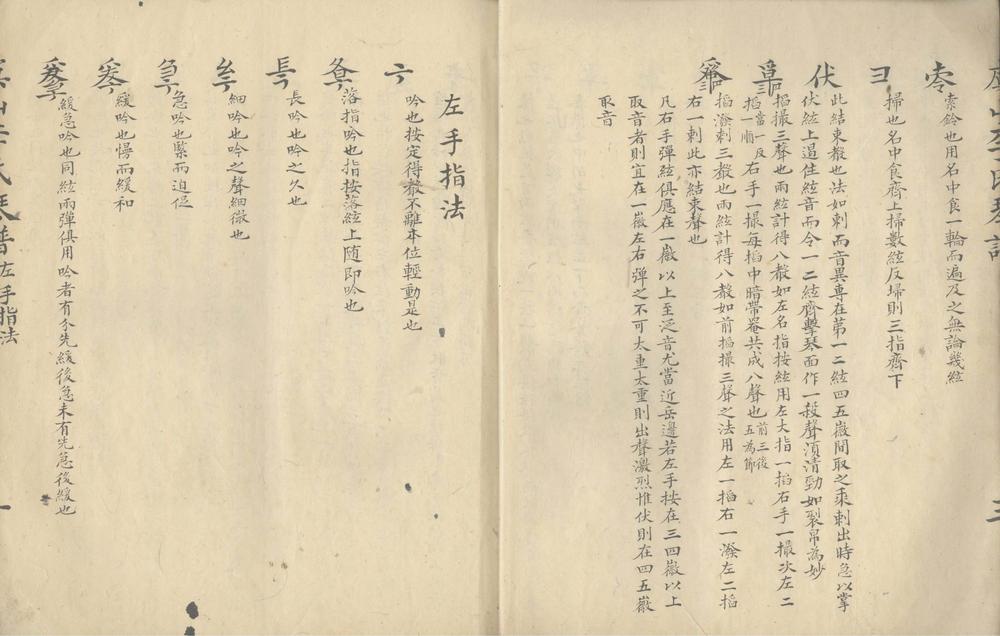 索鈴也用名中食一輪而遍及之無論幾絃
掃也名中食齊上掃數絃反埽則三指齊下
伏
此結束聲也法如剌而音異專在第一二絃四五徽間取之乘剌出時急以掌
伏絃上逼住絃音而令一二絃齊擊琴面作一殺聲湏清勁如裂帛為妙
搯撮三聲也兩絃計得八聲如左名指按絃用左大指一搯右手一撮次左二
搯當一反一順右手一撮每搯中暗帶罨共成八聲也前三後五為節
搯潑剌三聲也兩絃計得八聲如前搯撮三聲之法用左一搯右一潑左二搯
右一剌此亦結束聲也
凡右手彈絃俱應在一徽以上至泛音尤當近岳邊若左手按在三四徽以上
取音者則宜在一徽左右彈之不可太重太重則出聲激烈惟伏則在四五徽
取音
左手指法
吟也按定得聲不離本位輕動是也
落指吟也指按落絃上隨即吟也
長吟也吟之久也
細吟也吟之聲細微也
急吟也緊而迫促
緩吟也慢而緩和
緩急吟也同絃兩彈俱用吟者有分先緩後急未有先急後緩也
左手指法